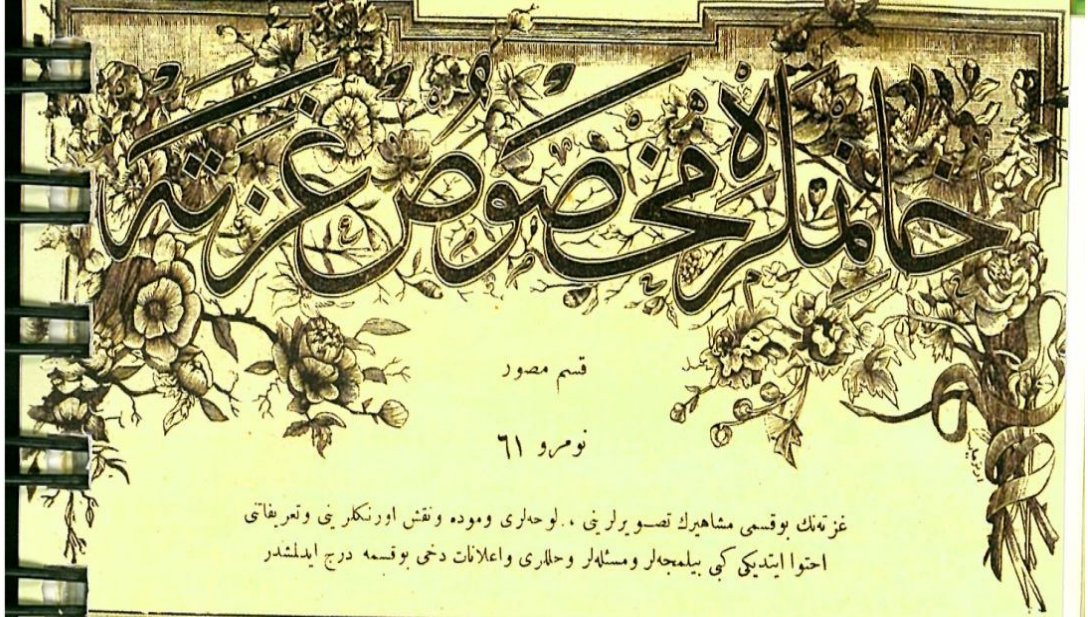 خانملره مخصوص غزته
قسم مصور
نومرو ٦١
غزته‌نك بوقسمی مشاهيرك تصويرلرينی ، لوحه‌لری وموده ونقش اورنكلرينی وتعريفاتنی
احتوا ايتديكی كبی بيلمجه‌لر ومسئله‌لر وحللری واعلانات دخی بوقسمه درج ايدلمشدر